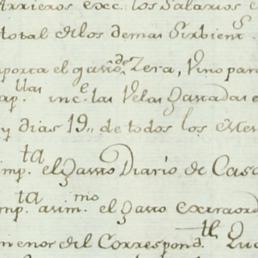 Arrieros exc. los Salarios
total dẽlos demas Sirbien.s
porta el gasto de Zera, Vino para
cap.llas inc.e las Velas Gastadas
y dias 19,, de todos los Mese
imp.ta el Gasto Diario de Casa
imp.ta asim.mo el Gasto extraord
menor del Correspond.te Qua